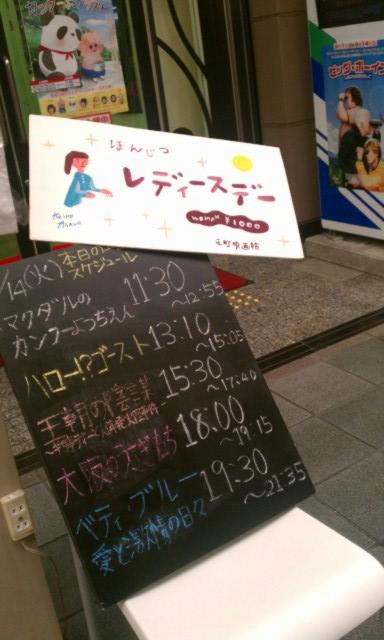 ほんじつ
レディースデー
WOMAN ¥1000
元町映画館
本日の
スケジュール
/14(火)
マクダルの
カンフーようちえん
11:30
～12:55
ハロー!?ゴースト
13:10
～15:05
15:30
～17:40
大阪のうさぎたち
18:00
～19:15
ベティ・ブルー
愛と激情の日々
19:30
～21:35